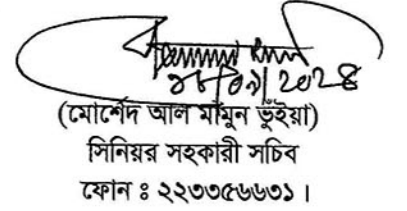 ২০২৪
(মোর্শেদ আল মামুন ভূঁইয়া)
সিনিয়র সহকারী সচিব
ফোন ঃ ২২৩৩৫৬৬৩১ ।